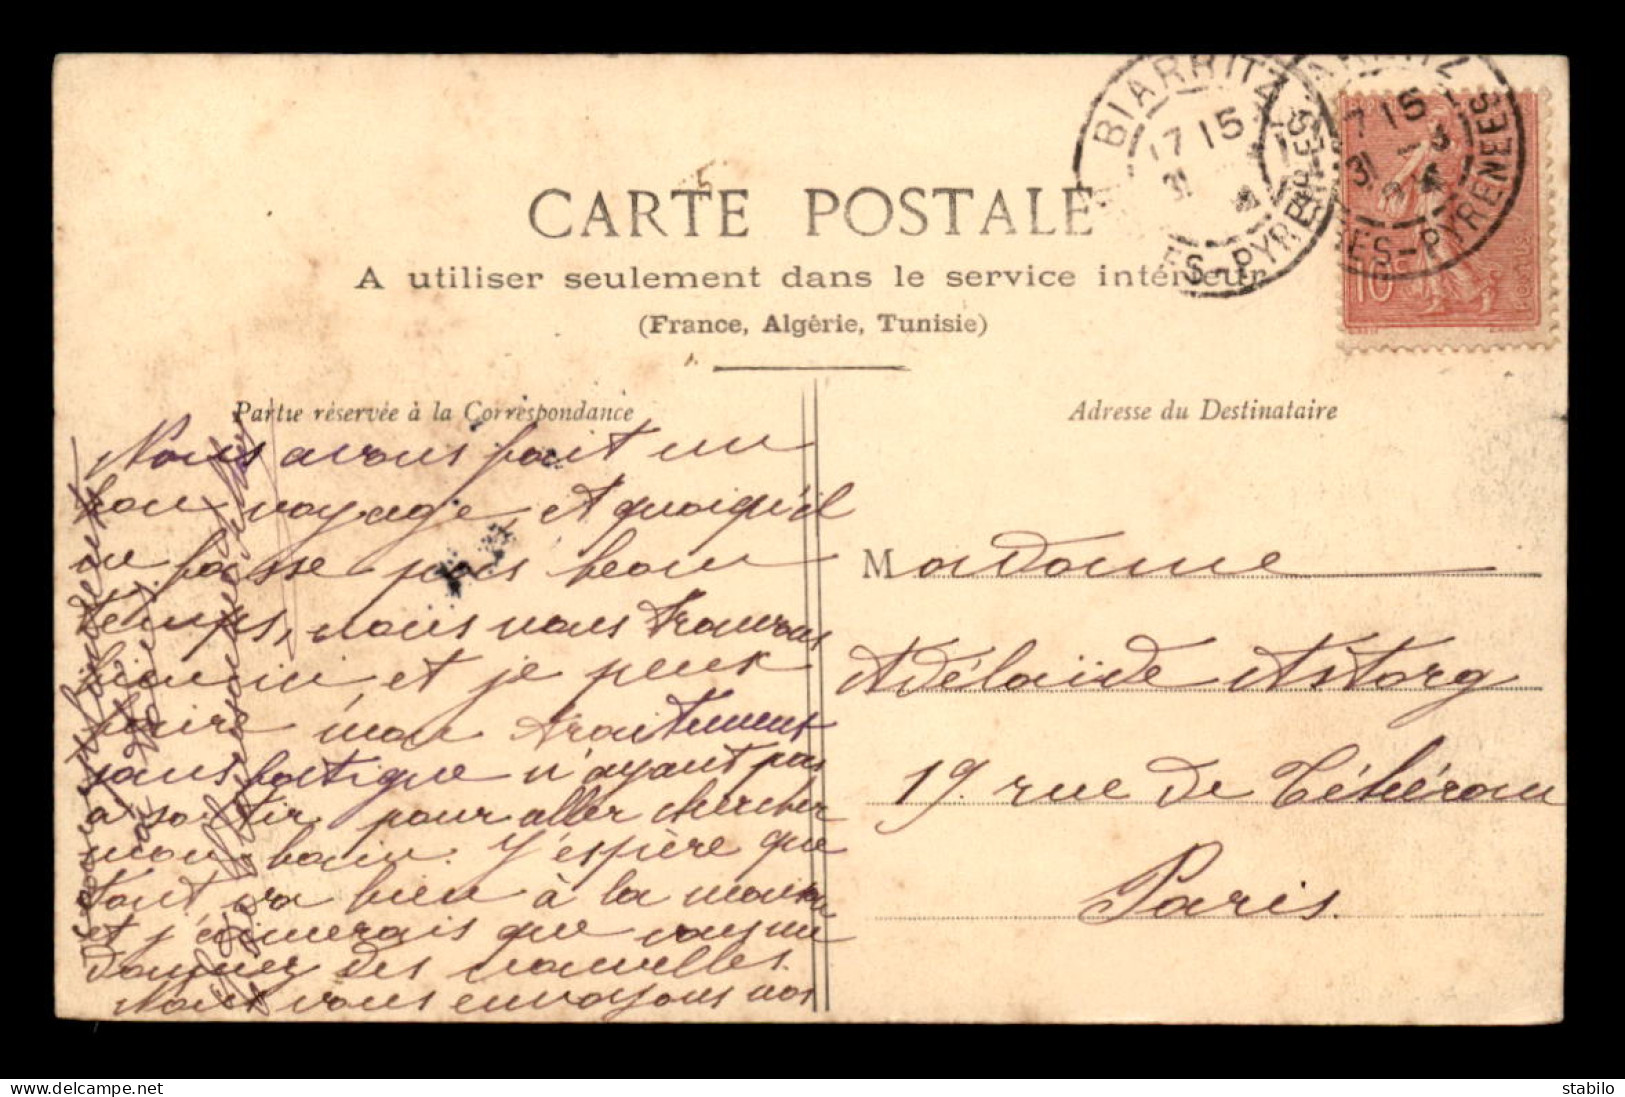 BIARRITZ
17 15
31
BSES-PYRENEES
BIARRITZ
17 15
31 - 3
BSES-PYRENEES
10
CARTE POSTALE
A utiliser seulement dans le service intérieur
(France, Algérie, Tunisie)
Partie réservée à la Correspondance
Nous avons fait un
bon voyage, et quoiqu'il
ne fasse pas beau
temps, nous nous trouvons
bien ici et je peux
faire mon traitement
sans fatigue n'ayant pas
à sortir pour aller chercher
mon bain. J'espère que
tout va bien à la maison
et j'aimerais que vous me
donniez des nouvelles.
Nous vous envoyons nos
Adresse du Destinataire
Madame
Adélaïde Astorg
19. rue de Téhéran
Paris.
delcampe.net
stabilo